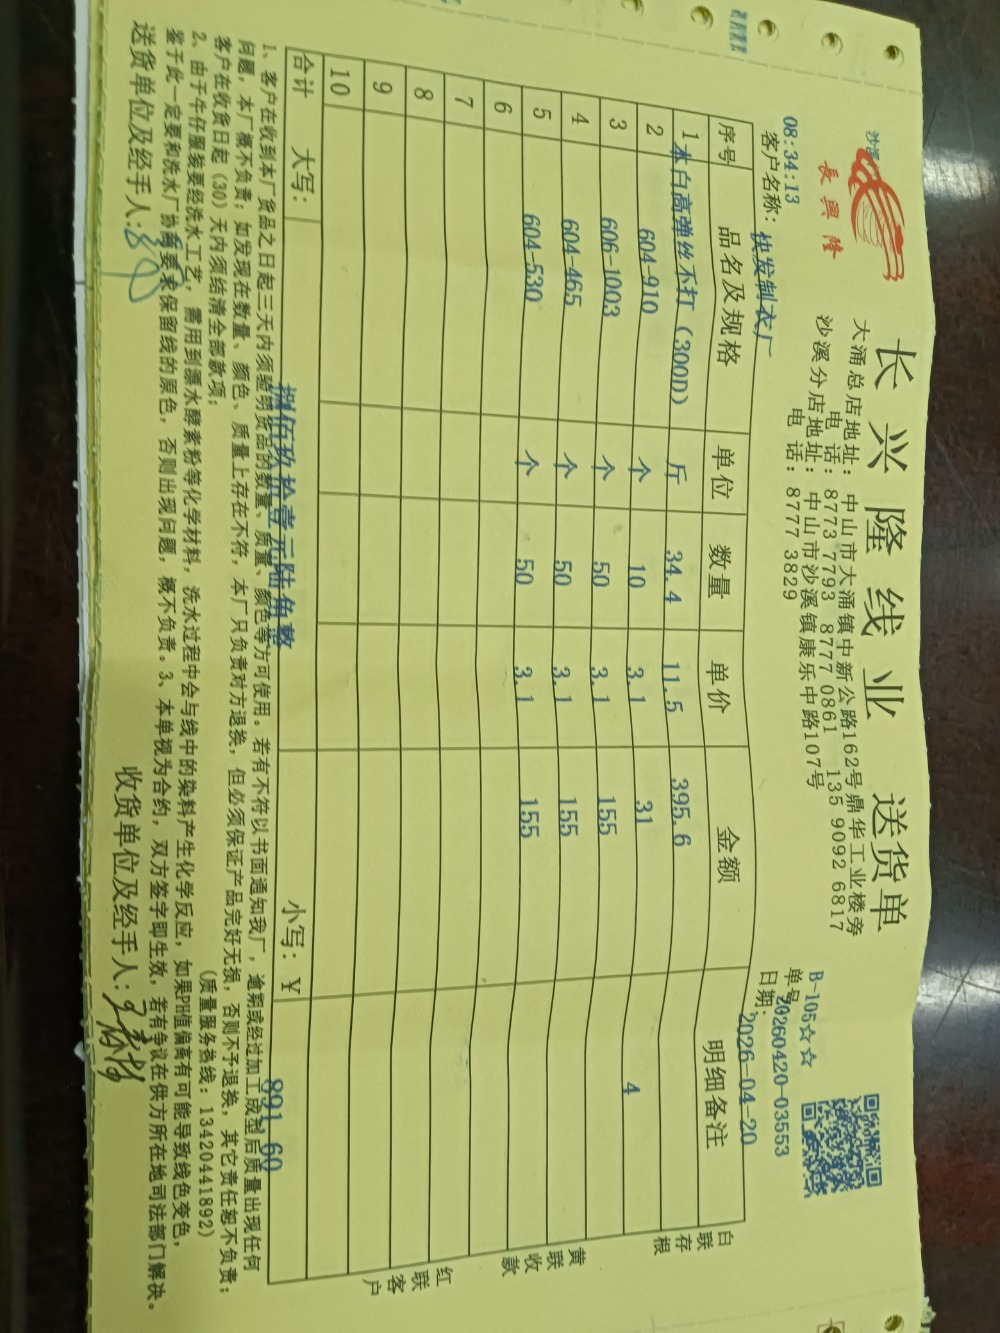 長興隆
长兴隆线业 送货单
大涌总店地址:中山市大涌镇中新公路162号鼎华工业楼旁
电 话:8773 7793 8777 0861 135 9092 6817
沙溪分店地址:中山市沙溪镇康乐中路107号
电 话:8777 3829
B-105☆☆
单号20260420-03553
日期:2026-04-20
08:34:13
客户名称:快发制衣厂
序号 品名及规格 单位 数量 单价 金额 明细备注
1 本白高弹丝不打(300D) 斤 34.4 11.5 395.6
2 604-910 个 10 3.1 31 4
3 606-1003 个 50 3.1 155
4 604-465 个 50 3.1 155
5 604-530 个 50 3.1 155
6
7
8
9
10
合计 大写: 捌佰玖拾壹元陆角整 小写:¥ 891.60
白联存根
黄联收款
红联客户
1、客户在收到本厂货品之日起三天内须验明货品的数量、质量、颜色等方可使用。若有不符以书面通知我厂,逾期或经过加工成型后质量出现任何
问题,本厂概不负责;如发现在数量、颜色、质量上存在不符,本厂只负责对方退换,但必须保证产品完好无损,否则不予退换,其它责任恕不负责;
客户在收货日起(30)天内须结清全部款项;
(质量服务热线:13420441892)
2、由于牛仔服装要经洗水工艺,需用到漂水酵素粉等化学材料,洗水过程中会与线中的染料产生化学反应,如果PH值偏高有可能导致线色变色,
鉴于此一定要和洗水厂协商要求保留线的原色,否则出现问题,概不负责。3、本单视为合约,双方签字即生效,若有争议在供方所在地司法部门解决。
送货单位及经手人:
收货单位及经手人: